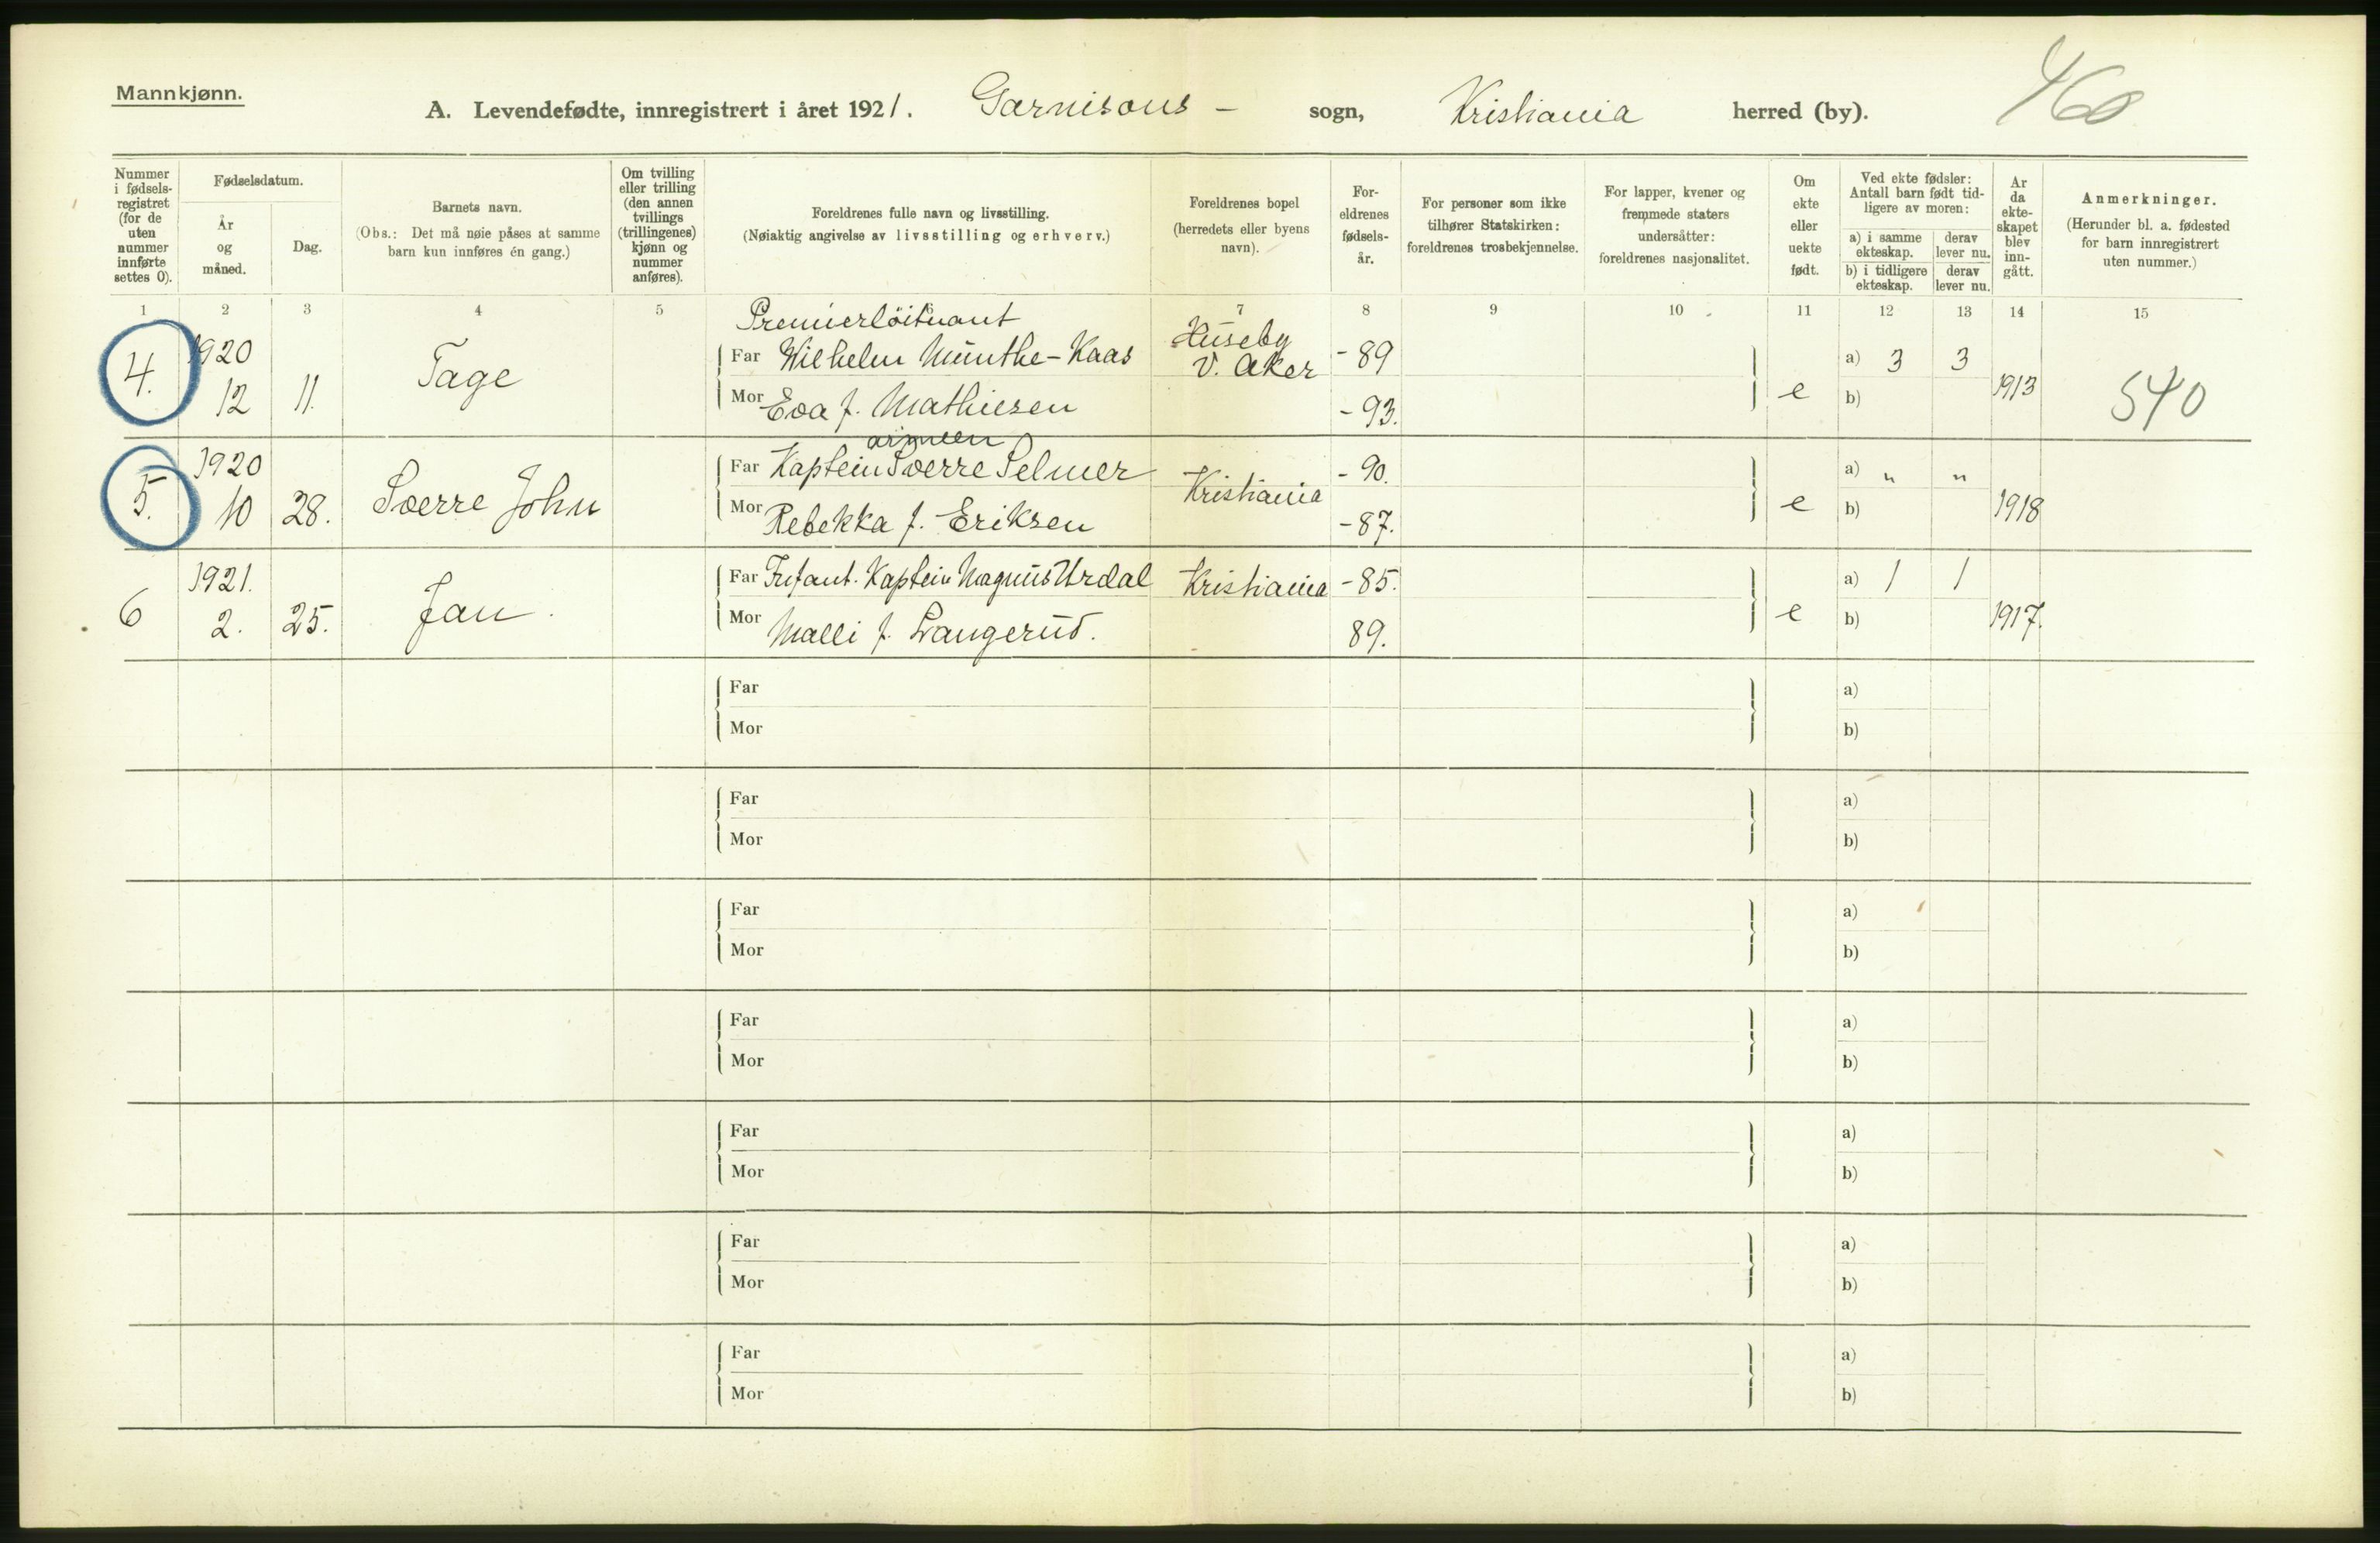 Mannkjønn.
A. Levendefødte, innregistrert i året 1921. Garnisons - sogn, Kristiania herred (by). 460
Nummer i fødsels- registret (for de uten nummer innførte settes 0).
Fødselsdatum.
År og måned.
Dag.
Barnets navn.
(Obs.: Det må nøie påses at samme barn kun innføres én gang.)
Om tvilling eller trilling (den annen tvillings (trillingenes) kjønn og nummer anføres).
Foreldrenes fulle navn og livsstilling.
(Nøiaktig angivelse av livsstilling og erhverv.)
Foreldrenes bopel (herredets eller byens navn).
For- eldrenes fødsels- år.
For personer som ikke tilhører Statskirken: foreldrenes trosbekjennelse.
For lapper, kvener og fremmede staters undersåtter: foreldrenes nasjonalitet.
Om ekte eller uekte født.
Ved ekte fødsler: Antall barn født tid- ligere av moren:
a) i samme ekteskap. derav lever nu.
b) i tidligere ekteskap. derav lever nu.
År da ekte- skapet blev inn- gått.
Anmerkninger.
(Herunder bl. a. fødested for barn innregistrert uten nummer.)
1 2 3 4 5 7 8 9 10 11 12 13 14 15
Premierlöitnant
4. 1920 12 11. Tage Far Wilhelm Munthe-Kaas Huseby V. Aker -89 a) 3 3
Mor Eva f. Mathiesen -93. e b) 1913 540
armeen
5. 1920 10 28. Sverre John Far Kaptein Sverre Selmer Kristiania -90. a) " "
Mor Rebekka f. Eriksen -87. e b) 1918
6 1921. 2. 25. Jan. Far Infant. Kaptein Magnus Urdal Kristiania -85. a) 1 1
Mor Malli f. Langerud. 89. e b) 1917.
Far a)
Mor b)
Far a)
Mor b)
Far a)
Mor b)
Far a)
Mor b)
Far a)
Mor b)
Far a)
Mor b)
Far a)
Mor b)